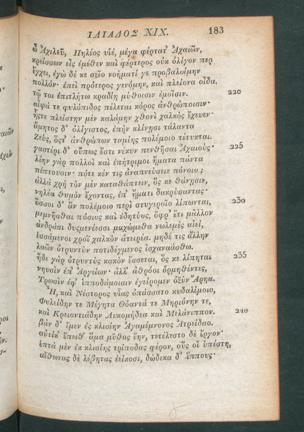 ΙΛΙΑΔΟΣ XIX. 183
ὦ Ἀχιλεῦ, Πηλῆος υἱέ, μέγα φέρτατ᾽ Ἀχαιῶν,
κρείσσων εἰς ἐμέθεν καὶ φέρτερος οὐκ ὀλίγον περ
ἔγχει, ἐγὼ δέ κε σεῖο νοήματί γε προβαλοίμην
πολλόν· ἐπεὶ πρότερος γενόμην, καὶ πλείονα οἶδα.
τῷ τοι ἐπιτλήτω κραδίη μύθοισιν ἐμοῖσιν. 220
αἶψά τε φυλόπιδος πέλεται κόρος ἀνθρώποισιν·
ἧστε πλείστην μὲν καλάμην χθονὶ χαλκὸς ἔχευεν·
ἄμητος δ᾽ ὀλίγιστος, ἐπὴν κλίνῃσι τάλαντα
Ζεὺς, ὅστ᾽ ἀνθρώπων ταμίης πολέμοιο τέτυκται.
γαστέρι δ᾽ οὔπως ἔστι νέκυν πενθῆσαι Ἀχαιούς· 225
λίην γὰρ πολλοὶ καὶ ἐπήτριμοι ἤματα πάντα
πίπτουσιν· πότε κέν τις ἀναπνεύσειε πόνοιο;
ἀλλὰ χρὴ τὸν μὲν καταθάπτειν, ὅς κε θάνῃσιν,
νηλέα θυμὸν ἔχοντας, ἐπ᾽ ἤματι δακρύσαντας·
ὅσσοι δ᾽ ἂν πολέμοιο περὶ στυγεροῖο λίπωνται, 230
μεμνῆσθαι πόσιος καὶ ἐδητύος, ὄφρ᾽ ἔτι μᾶλλον
ἀνδράσι δυσμενέεσσι μαχώμεθα νωλεμὲς αἰεί,
ἑσσάμενοι χροῒ χαλκὸν ἀτειρέα. μηδέ τις ἄλλην
λαῶν ὀτρυντὺν ποτιδέγμενος ἰσχαναάσθω.
ἥδε γὰρ ὀτρυντὺς κακὸν ἔσσεται, ὅς κε λίπηται 235
νηυσὶν ἐπ᾽ Ἀργείων· ἀλλ᾽ ἀθρόοι ὁρμηθέντες,
Τρωσὶν ἐφ᾽ ἱπποδάμοισιν ἐγείρομεν ὀξὺν Ἄρηα.
Ἦ, καὶ Νέστορος υἷας ὀπάσσατο κυδαλίμοιο,
Φυλείδην τε Μέγητα Θόαντά τε Μηριόνην τε,
καὶ Κρειοντιάδην Λυκομήδεα καὶ Μελάνιππον. 240
βὰν δ᾽ ἴμεν ἐς κλισίην Ἀγαμέμνονος Ἀτρείδαο.
αὐτίκ᾽ ἔπειθ᾽ ἅμα μῦθος ἔην, τετέλεστο δὲ ἔργον·
ἑπτὰ μὲν ἐκ κλισίης τρίποδας φέρον, οὕς οἱ ὑπέστη,
αἴθωνας δὲ λέβητας ἐείκοσι, δώδεκα δ᾽ ἵππους·